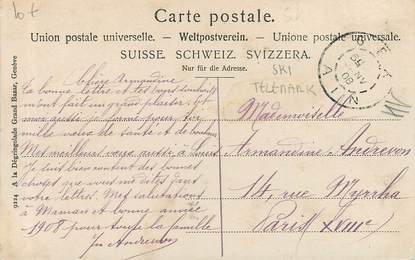 lot
Carte postale.
Union postale universelle. — Weltpostverein. — Unione postale universale.
SUISSE. SCHWEIZ. SVIZZERA.
Nur für die Adresse.
SKI
TELEMARK
AIN
Chère Armandine
ta bonne lettre et tes bons souhaits
m'ont fait un grand plaisir.
moi aussi je forme pour toi
mille vœux de santé et de bonheur
Mes meilleurs vœux aussi à Louis
Je suis bien content des bonnes
choses que vous me dites dans
votre lettre. Mes salutations
à Maman et bonne année
1908 pour toute la famille
Andrevon
Mademoiselle
Armandine Andrevon
14, rue Myrrha
Paris XVIIIe
9224 A la Dégringolade Grand Bazar, Genève